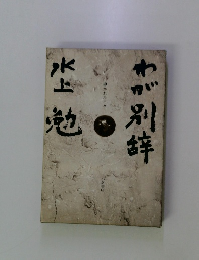 わが別辞
水上勉